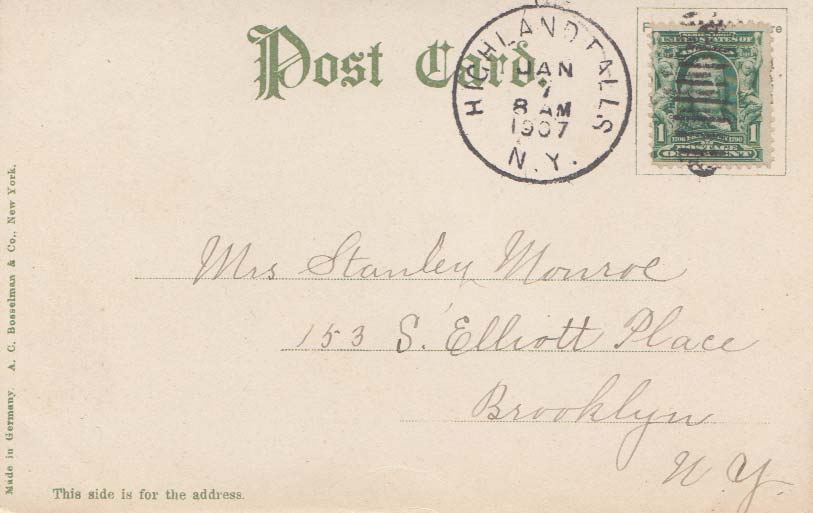 Post Card.
HIGHLAND FALLS
JAN
7
8 AM
1907
N.Y.
1 1
POSTAGE
Mrs Stanley Monroe
153 S. Elliott Place
Brooklyn
N.Y.
This side is for the address.
Made in Germany. A. C. Bosselman & Co., New York.